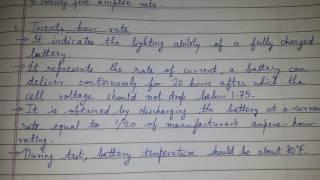 Twenty five ampere rate.
1. Twenty hour rate
→ It indicates the lighting ability of a fully charged
battery.
→ It represents the rate of current, a battery can
deliver continuously for 20 hours after which the
cell voltage should not drop below 1.75.
→ It is obtained by discharging the battery at a current
rate equal to 1/20 of manufacturer's ampere-hour
rating.
→ During test, battery temperature should be about 80°F.